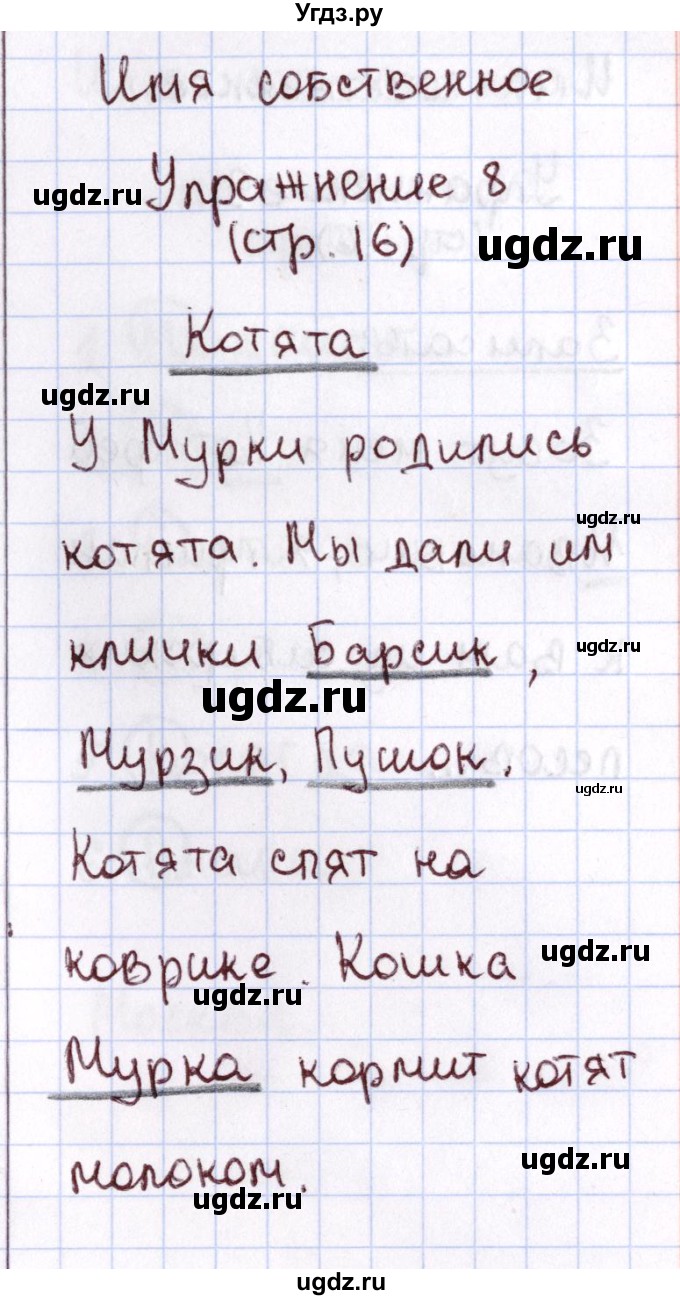 Угдз.ру
Имя собственное
Упражнение 8
ugdz.ru
(стр. 16)
ugdz.ru
Котята
ugdz.ru
У Мурки родились
ugdz.ru
котята. Мы дали им
клички Барсик,
ugdz.ru
ugdz.ru
Мурзик, Пушок.
ugdz.ru
Котята спят на
коврике. Кошка
ugdz.ru
ugdz.ru
Мурка кормит котят
молоком.
ugdz.ru
ugdz.ru
ugdz.ru